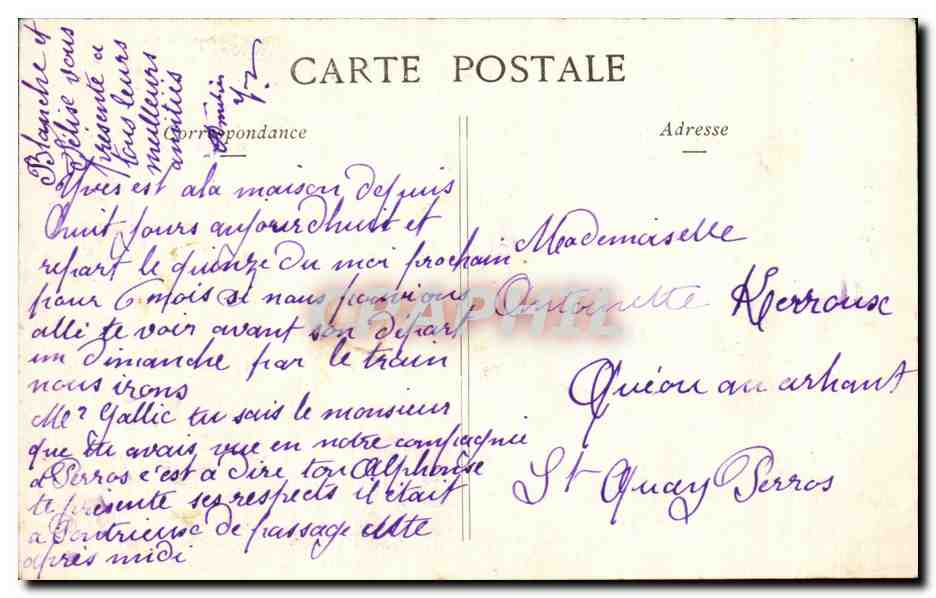 CARTE POSTALE
Correspondance
Adresse
Blanche et
Hélise vous
présente a
tous leurs
meilleurs
amitiés
Yves est a la maison depuis
huit jours aujourd'huit et
repart le quinze du moi prochain
pour 6 mois si nous pouvions
allé te voir avant son départ
un dimanche par le train
nous irons
Mr Gallic tu sais le monsieur
que tu avais vue en notre compagnie
a Perros c'est a dire ton Alphonse
te présente ses respects il était
a Pontrieuse de passage cette
après midi
Mademoiselle
Antoinette Kerroux
Quéou an arhant
St Quay Perros
CPAPHIL